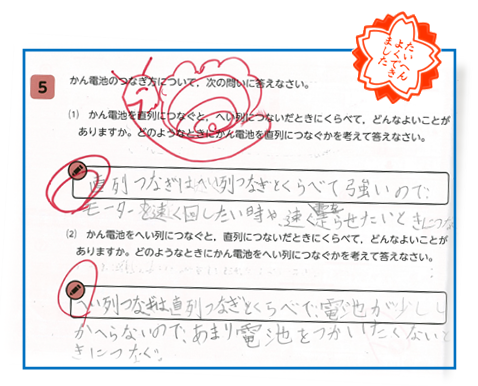 たいへん
よくでき
ました
5
かん電池のつなぎ方について，次の問いに答えなさい。
(1) かん電池を直列につなぐと，へい列につないだときにくらべて，どんなよいことが
ありますか。どのようなときにかん電池を直列につなぐかを考えて答えなさい。
直列つなぎはへい列つなぎとくらべて強いので、
モーターを速く回したい時や、速く走らせたいときにつな
(2) かん電池をへい列につなぐと，直列につないだときにくらべて，どんなよいことが
ありますか。どのようなときにかん電池をへい列につなぐかを考えて答えなさい。
へい列つなぎは直列つなぎとくらべて、電池が少しし
かへらないので、あまり電池をつかいたくないと
きにつなぐ。